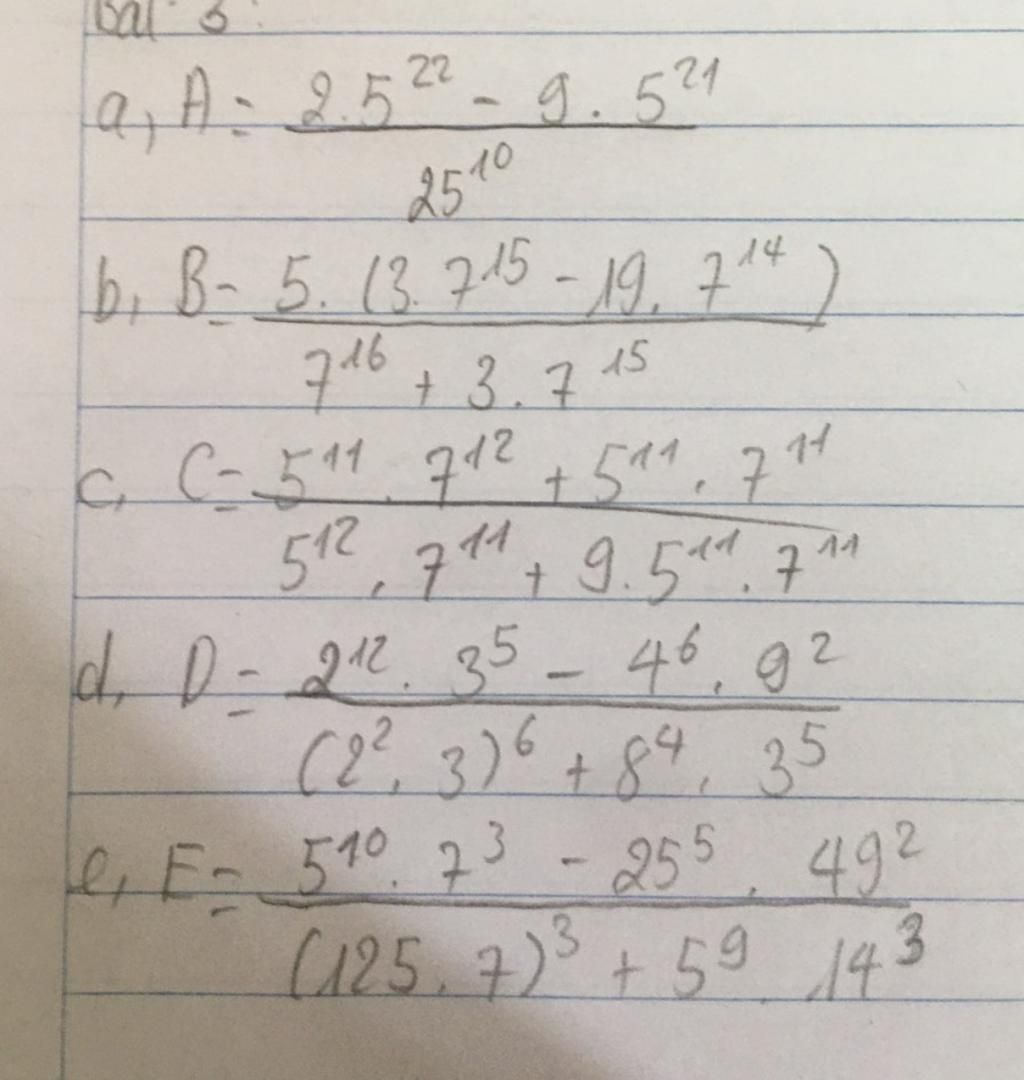 Bài 3:
a, A = 2.5²² - 9. 5²¹
25¹⁰
b, B = 5. (3. 7¹⁵ - 19. 7¹⁴)
7¹⁶ + 3. 7¹⁵
c, C = 5¹¹. 7¹² + 5¹¹. 7¹¹
5¹². 7¹¹ + 9. 5¹¹. 7¹¹
d, D = 2¹². 3⁵ - 4⁶. 9²
(2². 3)⁶ + 8⁴. 3⁵
e, E = 5¹⁰. 7³ - 25⁵. 49²
(125. 7)³ + 5⁹. 14³